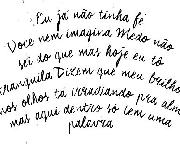 Eu já não tinha fé
Você nem imagina Medo não
sei do que mas hoje eu tô
tranquila Dizem que meu brilho
nos olhos tá irradiando pra alma
mas aqui dentro só tem uma
palavra